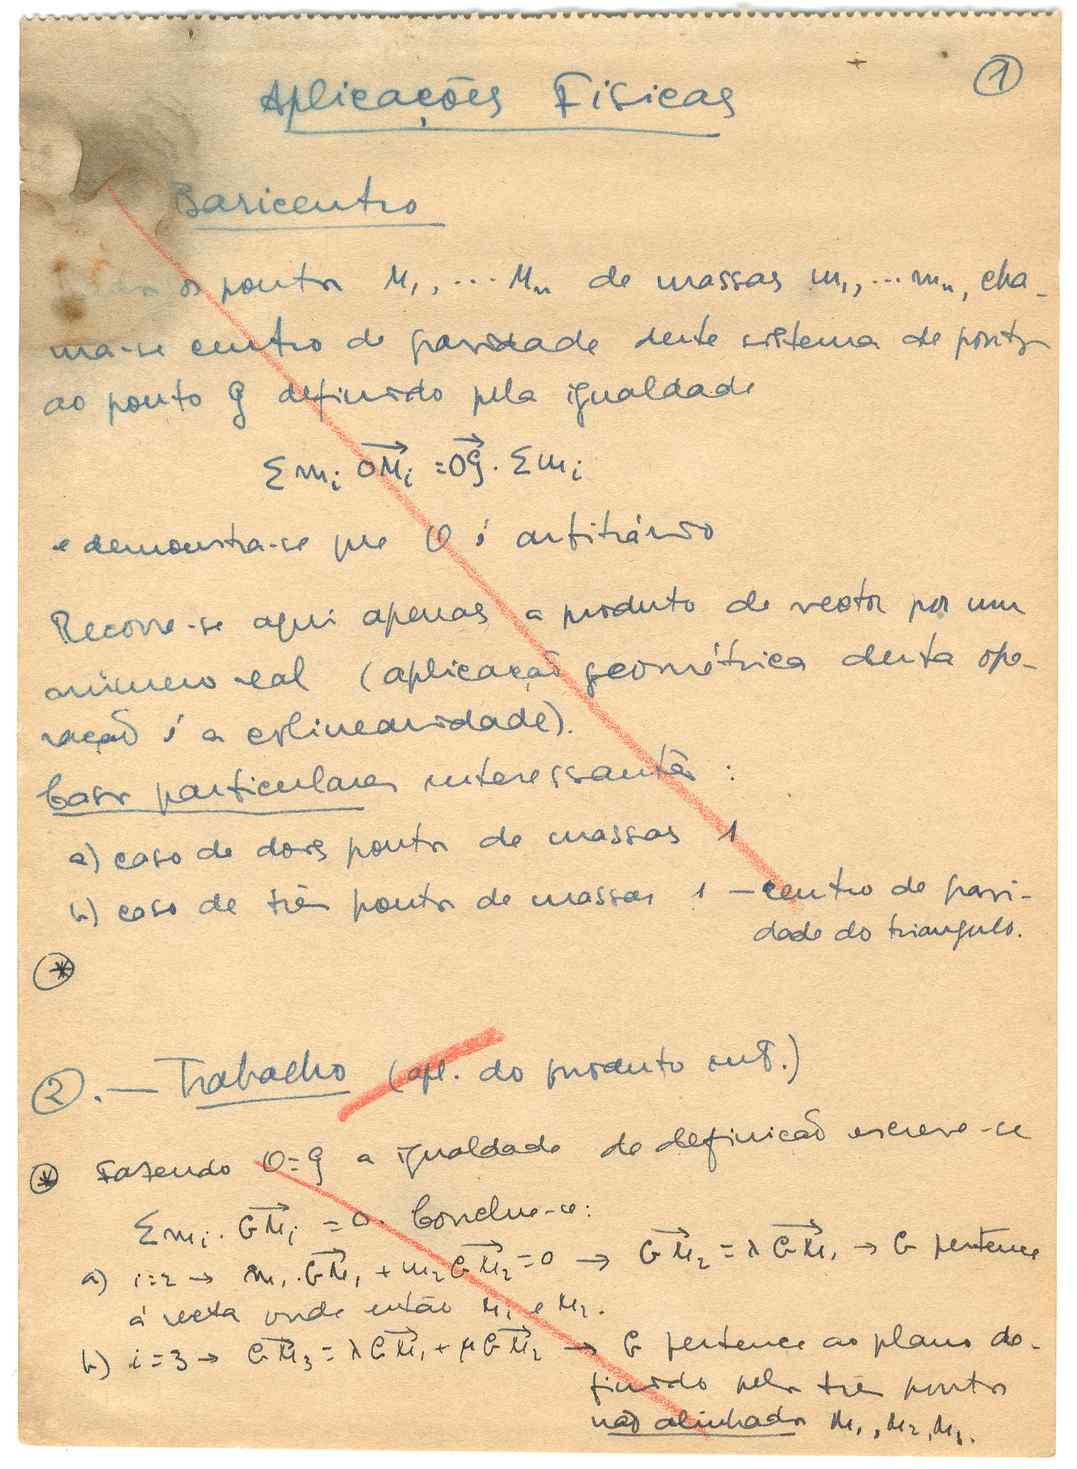 ①
Aplicações Físicas
Baricentro
os pontos M₁, ... Mₙ de massas m₁, ... mₙ, cha-
ma-se centro de gravidade deste sistema de pontos
ao ponto G definido pela igualdade
Σ mᵢ OMᵢ = OG . Σ mᵢ
e demonstra-se que O é arbitrário
Recorre-se aqui apenas a produto de vector por um
número real (aplicação geométrica desta ope-
ração é a colinearidade).
Casos particulares interessantes :
a) caso de dois pontos de massas 1
b) caso de três pontos de massas 1 — centro de gravi-
dade do triangulo.
⊛
② . — Trabalho (apl. do produto int.)
⊛ Fazendo O=G a igualdade de definição escreve-se
Σ mᵢ . GMᵢ = 0. Conclue-se:
a) i=2 → m₁ . GM₁ + m₂ GM₂ = 0 → GM₂ = λ GM₁ → G pertence
á recta onde estão M₁ e M₂.
b) i = 3 → GM₃ = λ GM₁ + μ GM₂ → G pertence ao plano de-
finido pelos três pontos
não alinhados M₁, M₂, M₃.